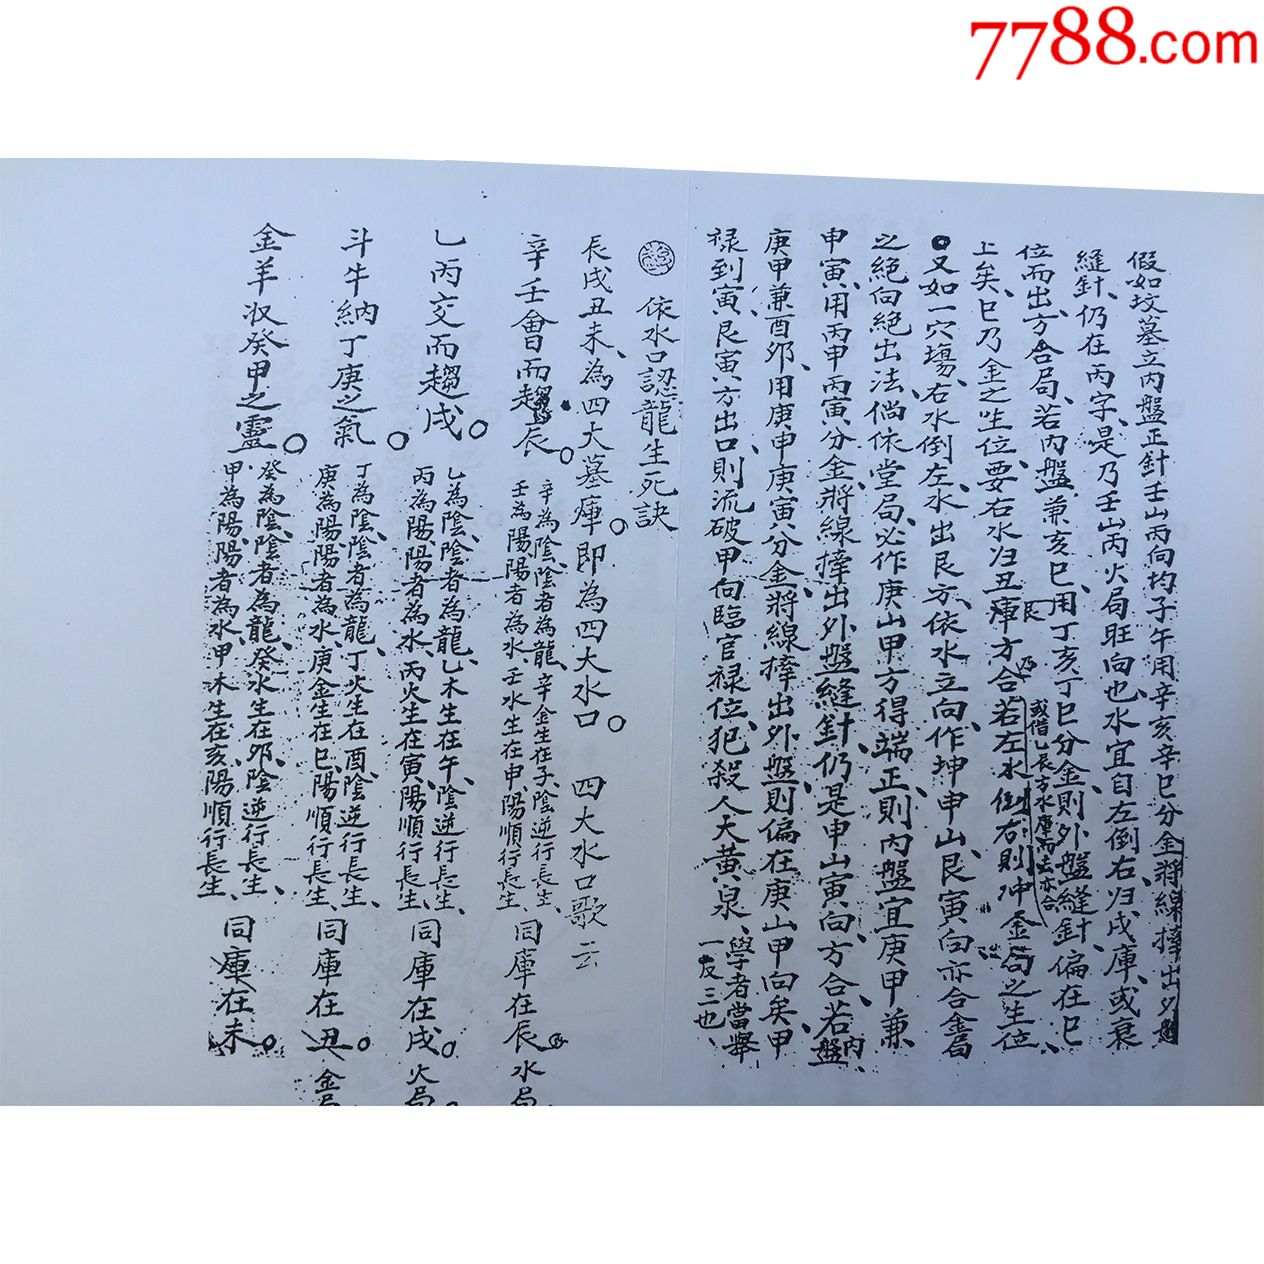 7788.com
假如坟墓立内盤正針壬山丙向均子午用辛亥辛巳分金將線摔出外盤
縫針仍在丙字是乃壬山丙火局旺向也水宜自左倒右归戌庫或衰
位而出方合局若内盤兼亥巳用丁亥丁巳分金則外盤縫針偏在巳
上矣巳乃金之生位要右水归丑庫方合若左水倒右則冲金局之生位
艮
乃
或借乙辰方水庫而去亦合
又如一穴塲右水倒左水出艮方依水立向作坤申山艮寅向亦合金局
之絕向絕出法倘依堂局必作庚山甲方得端正則内盤宜庚甲兼
申寅用丙申丙寅分金將線摔出外盤縫針仍是申山寅向方合若内盤
庚甲兼酉卯用庚申庚寅分金將線摔出外盤則偏在庚山甲向矣甲
禄到寅艮寅方出口則流破甲向臨官禄位犯殺人大黄泉學者當舉
一反三也
依水口認龍生死訣
辰戌丑未為四大墓庫即為四大水口 四大水口歌云
辛壬會而趨辰 辛為陰陰者為龍辛金生在子陰逆行長生
壬為陽陽者為水壬水生在申陽順行長生 同庫在辰水局
乙丙交而趨戌 乙為陰陰者為龍乙木生在午陰逆行長生
丙為陽陽者為水丙火生在寅陽順行長生 同庫在戌火局
斗牛納丁庚之氣 丁為陰陰者為龍丁火生在酉陰逆行長生
庚為陽陽者為水庚金生在巳陽順行長生 同庫在丑金局
金羊收癸甲之靈 癸為陰陰者為龍癸水生在卯陰逆行長生
甲為陽陽者為水甲木生在亥陽順行長生 同庫在未